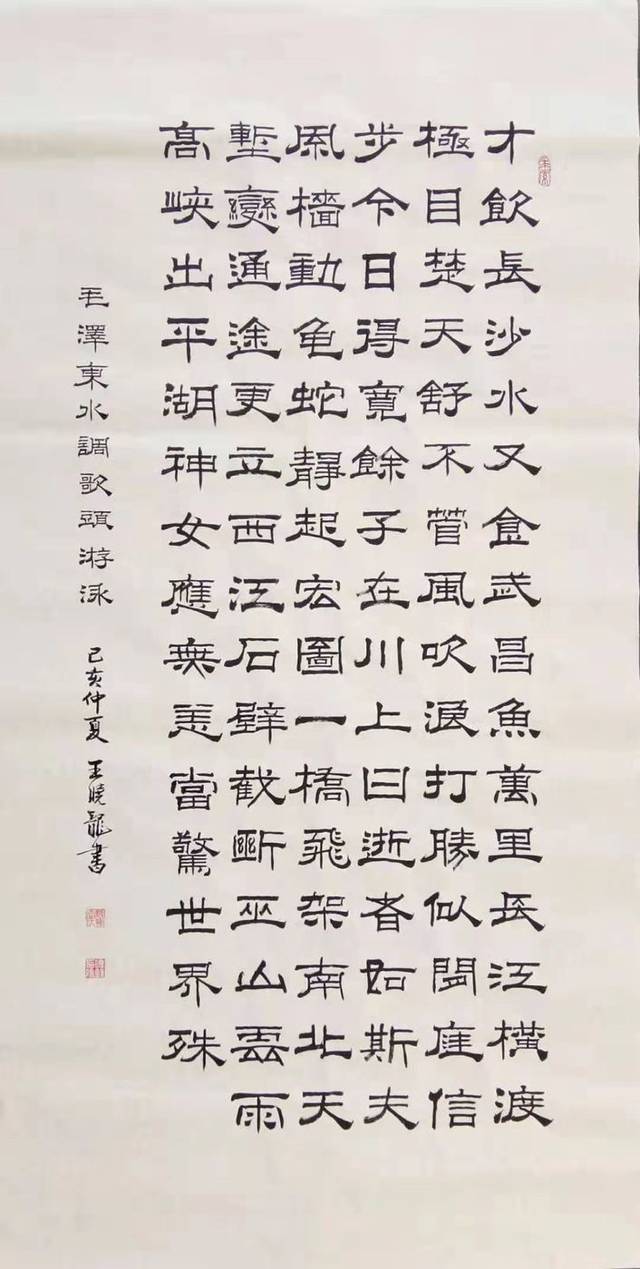 才飲長沙水又食武昌魚萬里長江橫渡
極目楚天舒不管風吹浪打勝似閒庭信
步今日得寬餘子在川上曰逝者如斯夫
風檣動龜蛇靜起宏圖一橋飛架南北天
塹變通途更立西江石壁截斷巫山雲雨
高峽出平湖神女應無恙當驚世界殊
毛澤東水調歌頭游泳 己亥仲夏 王曉龍書